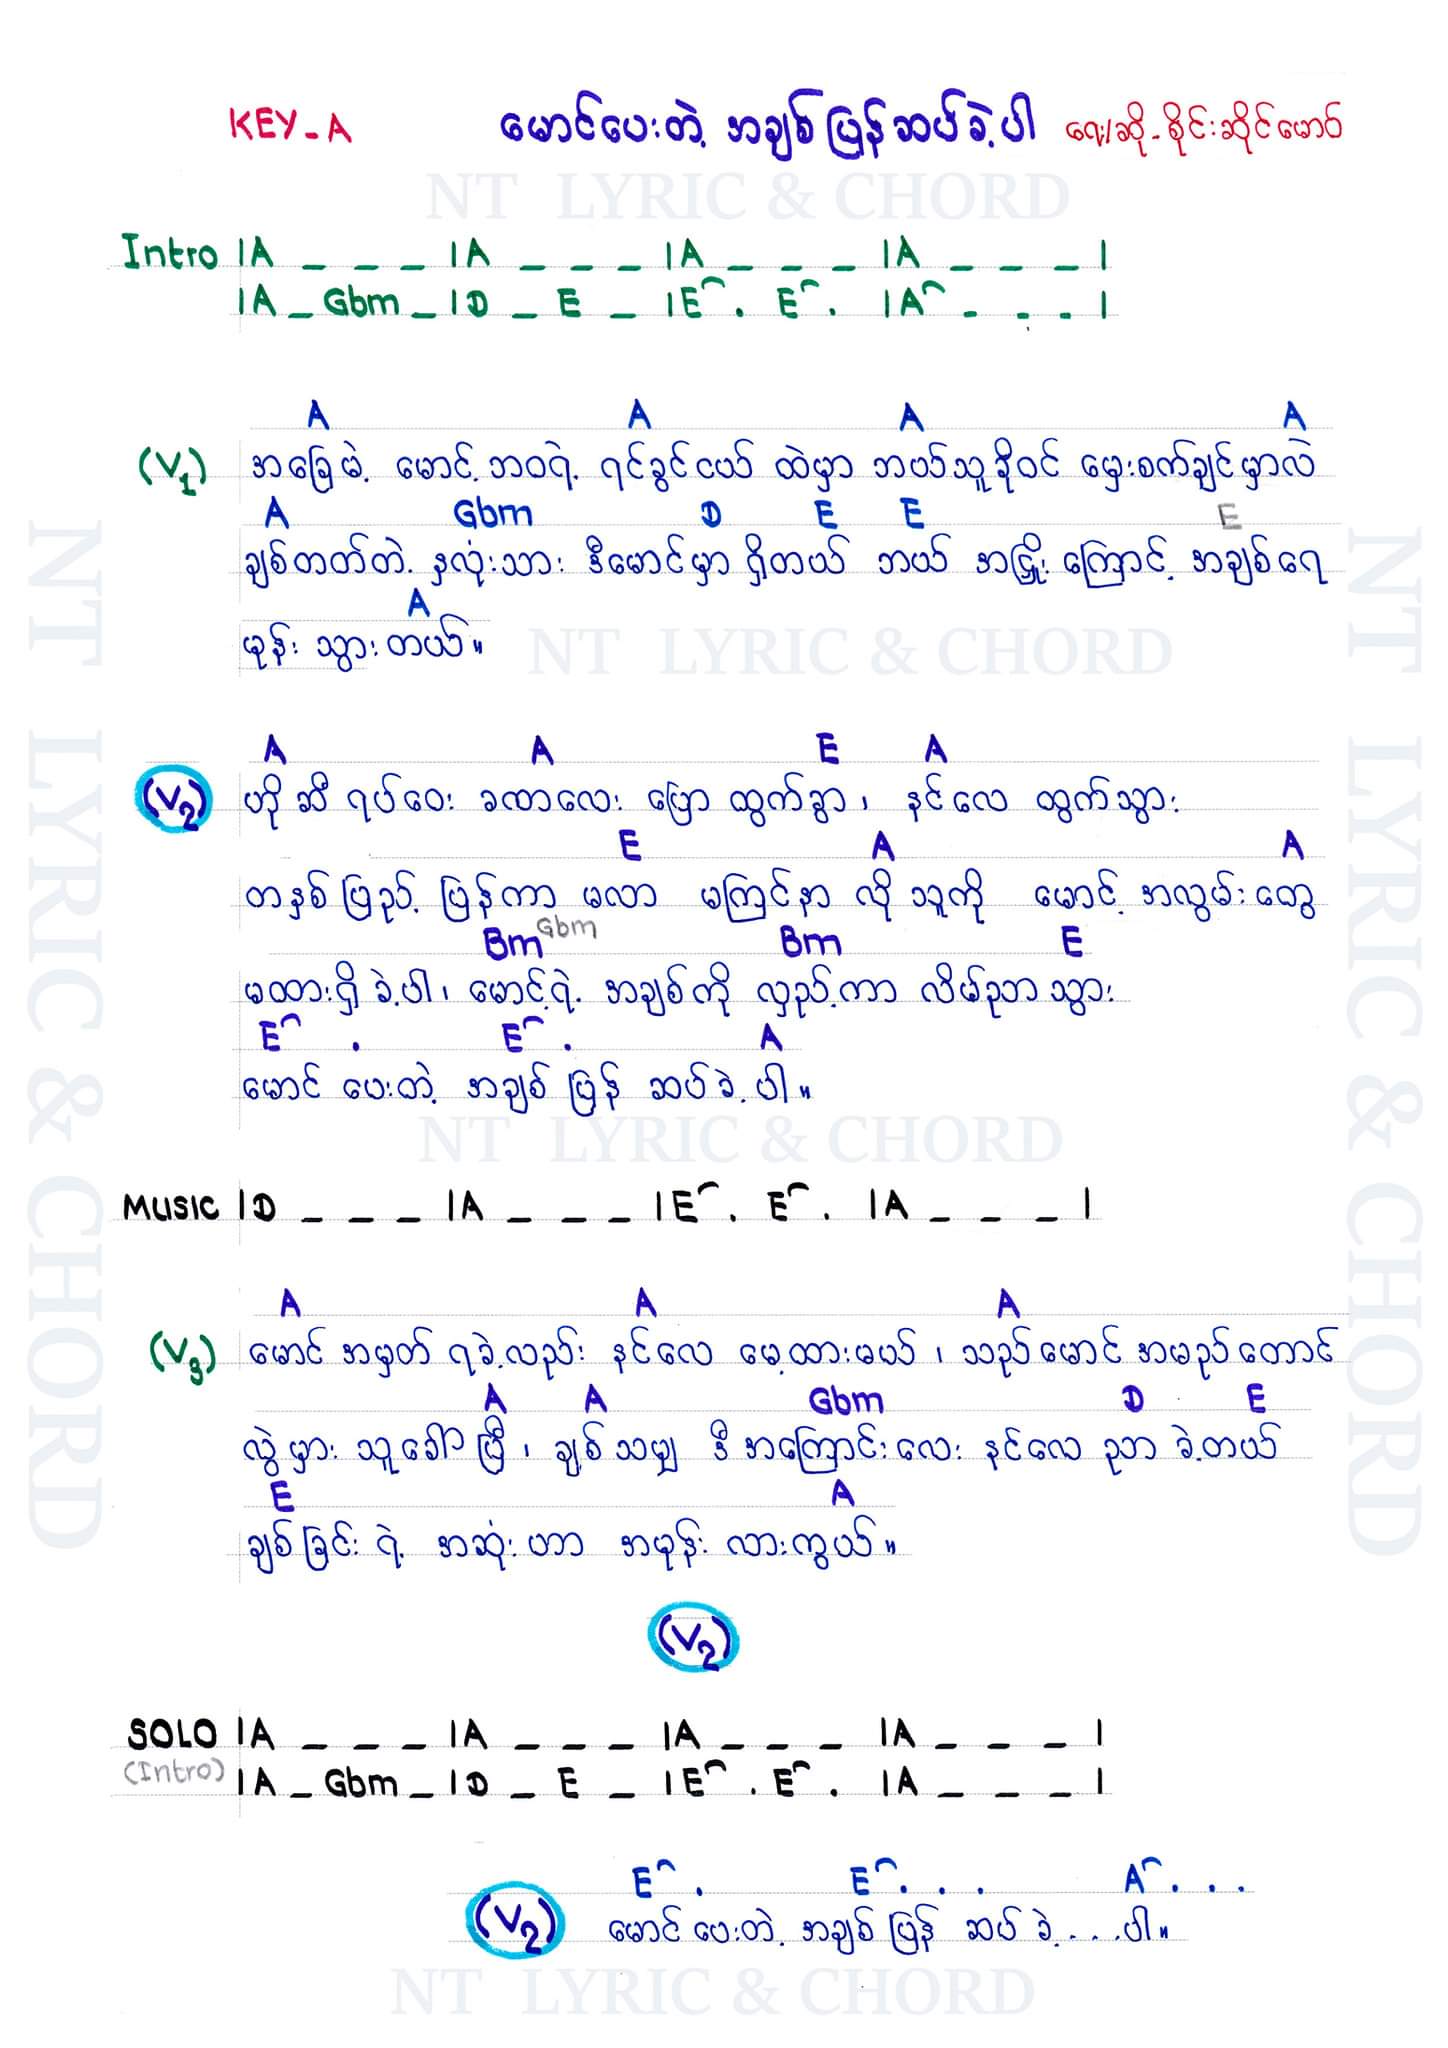 KEY-A မောင်ပေးတဲ့ အချစ်ပြန်ဆပ်ခဲ့ပါ ရေး/ဆို-စိုင်းဆိုင်မောဝ်
NT LYRIC & CHORD
Intro |A _ _ _ |A _ _ _ |A _ _ _ |A _ _ _ |
|A _ Gbm _ |D _ E _ |E⌒ . E⌒ . |A⌒ . . . |
A A A A
(V1) အခြေမဲ့ မောင့်ဘဝရဲ့ ရင်ခွင်ငယ် ထဲမှာ ဘယ်သူခိုဝင် မှေးစက်ချင်မှာလဲ
A Gbm D E E E
ချစ်တတ်တဲ့ နှလုံးသား ဒီမောင်မှာ ရှိတယ် ဘယ် အငြှိုး ကြောင့် အချစ်ရေ
A
မုန်း သွားတယ်။
NT LYRIC & CHORD
A A E A
(V2) ဟိုဆီ ရပ်ဝေး ခဏလေး ပြော ထွက်ခွာ၊ နင်လေ ထွက်သွား
E A A
တနှစ်ပြည့် ပြန်ကာ မလာ မကြင်နာ လို့ သူကို မောင့် အလွမ်းတွေ
Bm Gbm Bm E
မထားရှိခဲ့ပါ၊ မောင့်ရဲ့ အချစ်ကို လှည့်ကာ လိမ်ညာသွား
E⌒ . E⌒ . A
မောင် ပေးတဲ့ အချစ် ပြန် ဆပ်ခဲ့ပါ။
NT LYRIC & CHORD
MUSIC |D _ _ _ |A _ _ _ |E⌒ . E⌒ . |A _ _ _ |
A A A
(V3) မောင် အမှတ် ရခဲ့လည်း နင်လေ မေ့ထားမယ်၊ သည်မောင် အမည်တောင်
A A Gbm D E
လွဲမှား သူခေါ်ပြီ၊ ချစ်သမျှ ဒီ အကြောင်းလေး နင်လေ ညာ ခဲ့တယ်
E A
ချစ်ခြင်း ရဲ့ အဆုံးဟာ အမုန်း လားကွယ်။
(V2)
SOLO |A _ _ _ |A _ _ _ |A _ _ _ |A _ _ _ |
(Intro) |A _ Gbm _ |D _ E _ |E⌒ . E⌒ . |A _ _ _ |
E⌒ . E⌒ . . . A⌒ . . .
(V2) မောင်ပေးတဲ့ အချစ်ပြန် ဆပ် ခဲ့....ပါ။
NT LYRIC & CHORD
NT LYRIC & CHORD
NT LYRIC & CHORD